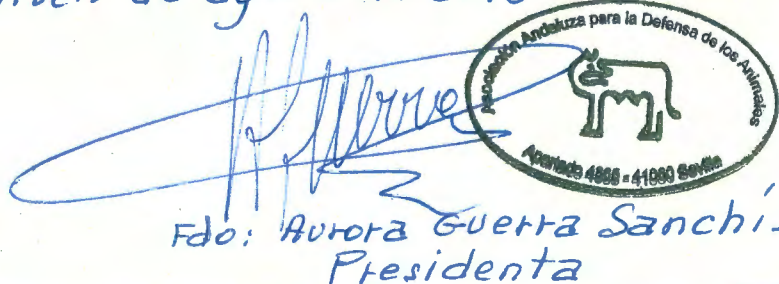 Asociación Andaluza para la Defensa de los Animales
A. Guerra
Apartado 4865 - 41080 Sevilla
Fdo: Aurora Guerra Sanchís
Presidenta